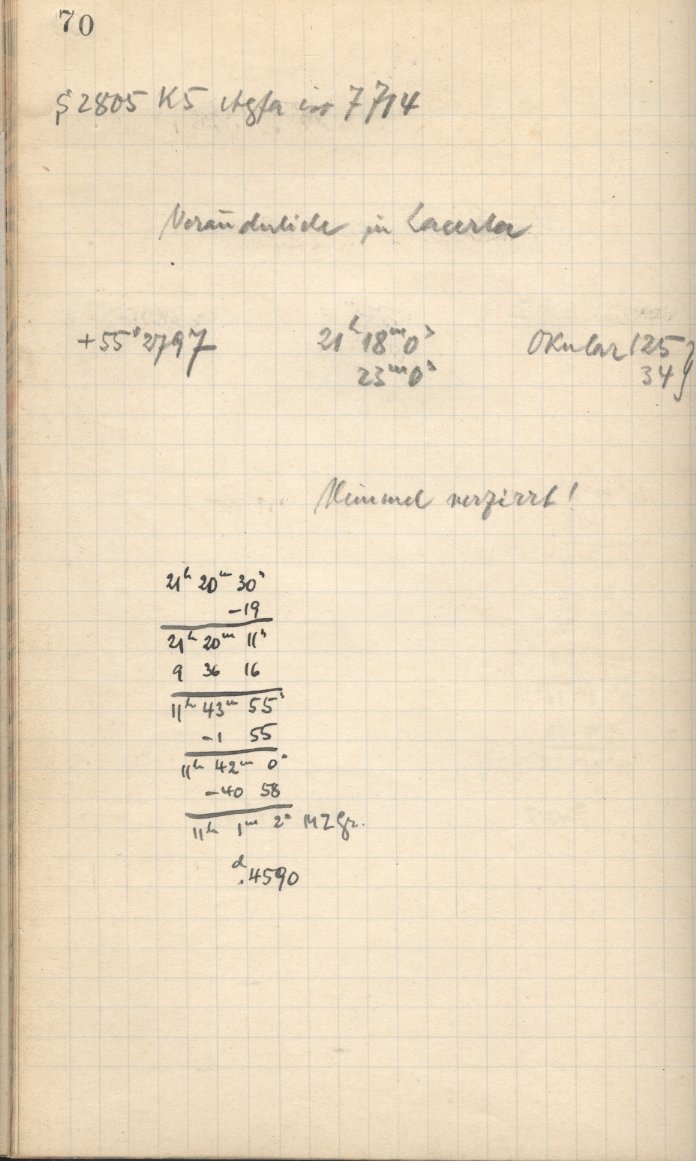 70
S 2805 K5 Agfa iso 7714
Veränderliche in Lacerta
+55° 2797 21ʰ 18ᵐ 0ˢ Okular 125
23ᵐ 0ˢ 34
Himmel verzirrt!
21ʰ 20ᵐ 30ˢ
-19
21ʰ 20ᵐ 11ˢ
9 36 16
11ʰ 43ᵐ 55ˢ
-1 55
11ʰ 42ᵐ 0ˢ
-40 58
11ʰ 1ᵐ 2ˢ MZGr.
ᵈ.4590